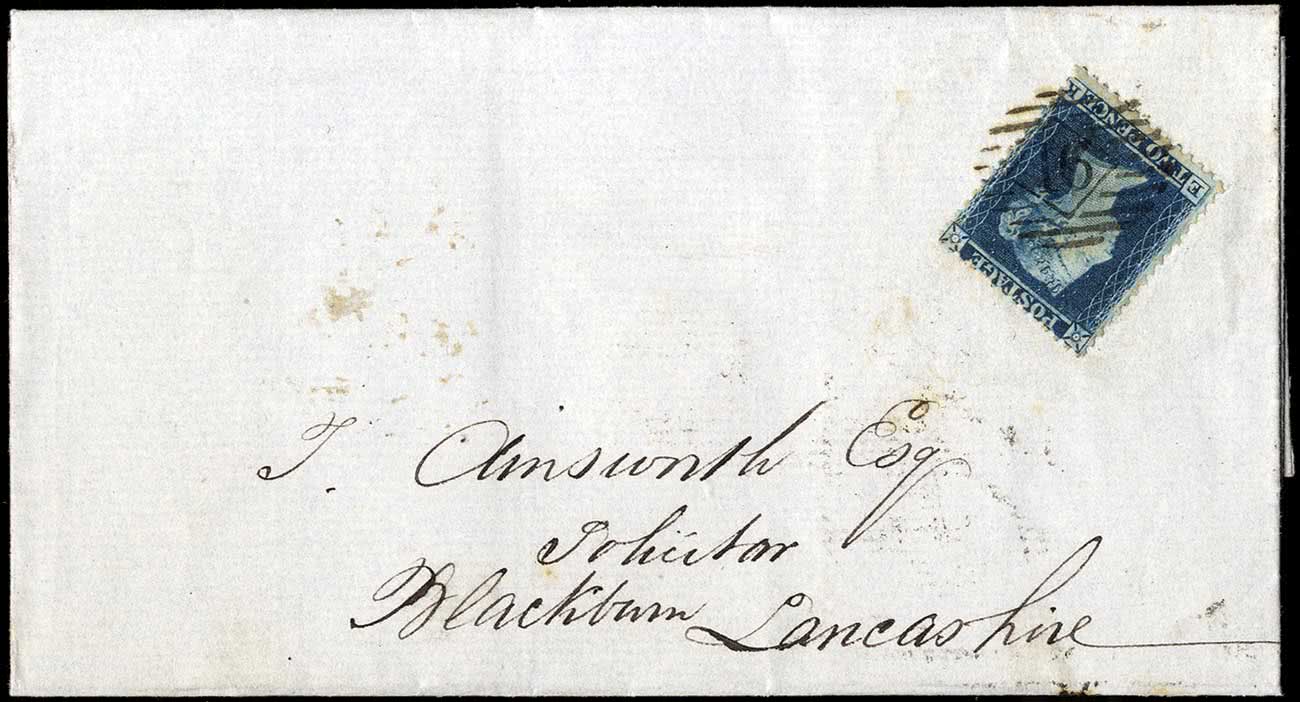 T. Ainsworth Esq
Solicitor
Blackburn Lancashire
POSTAGE
E TWO PENCE K